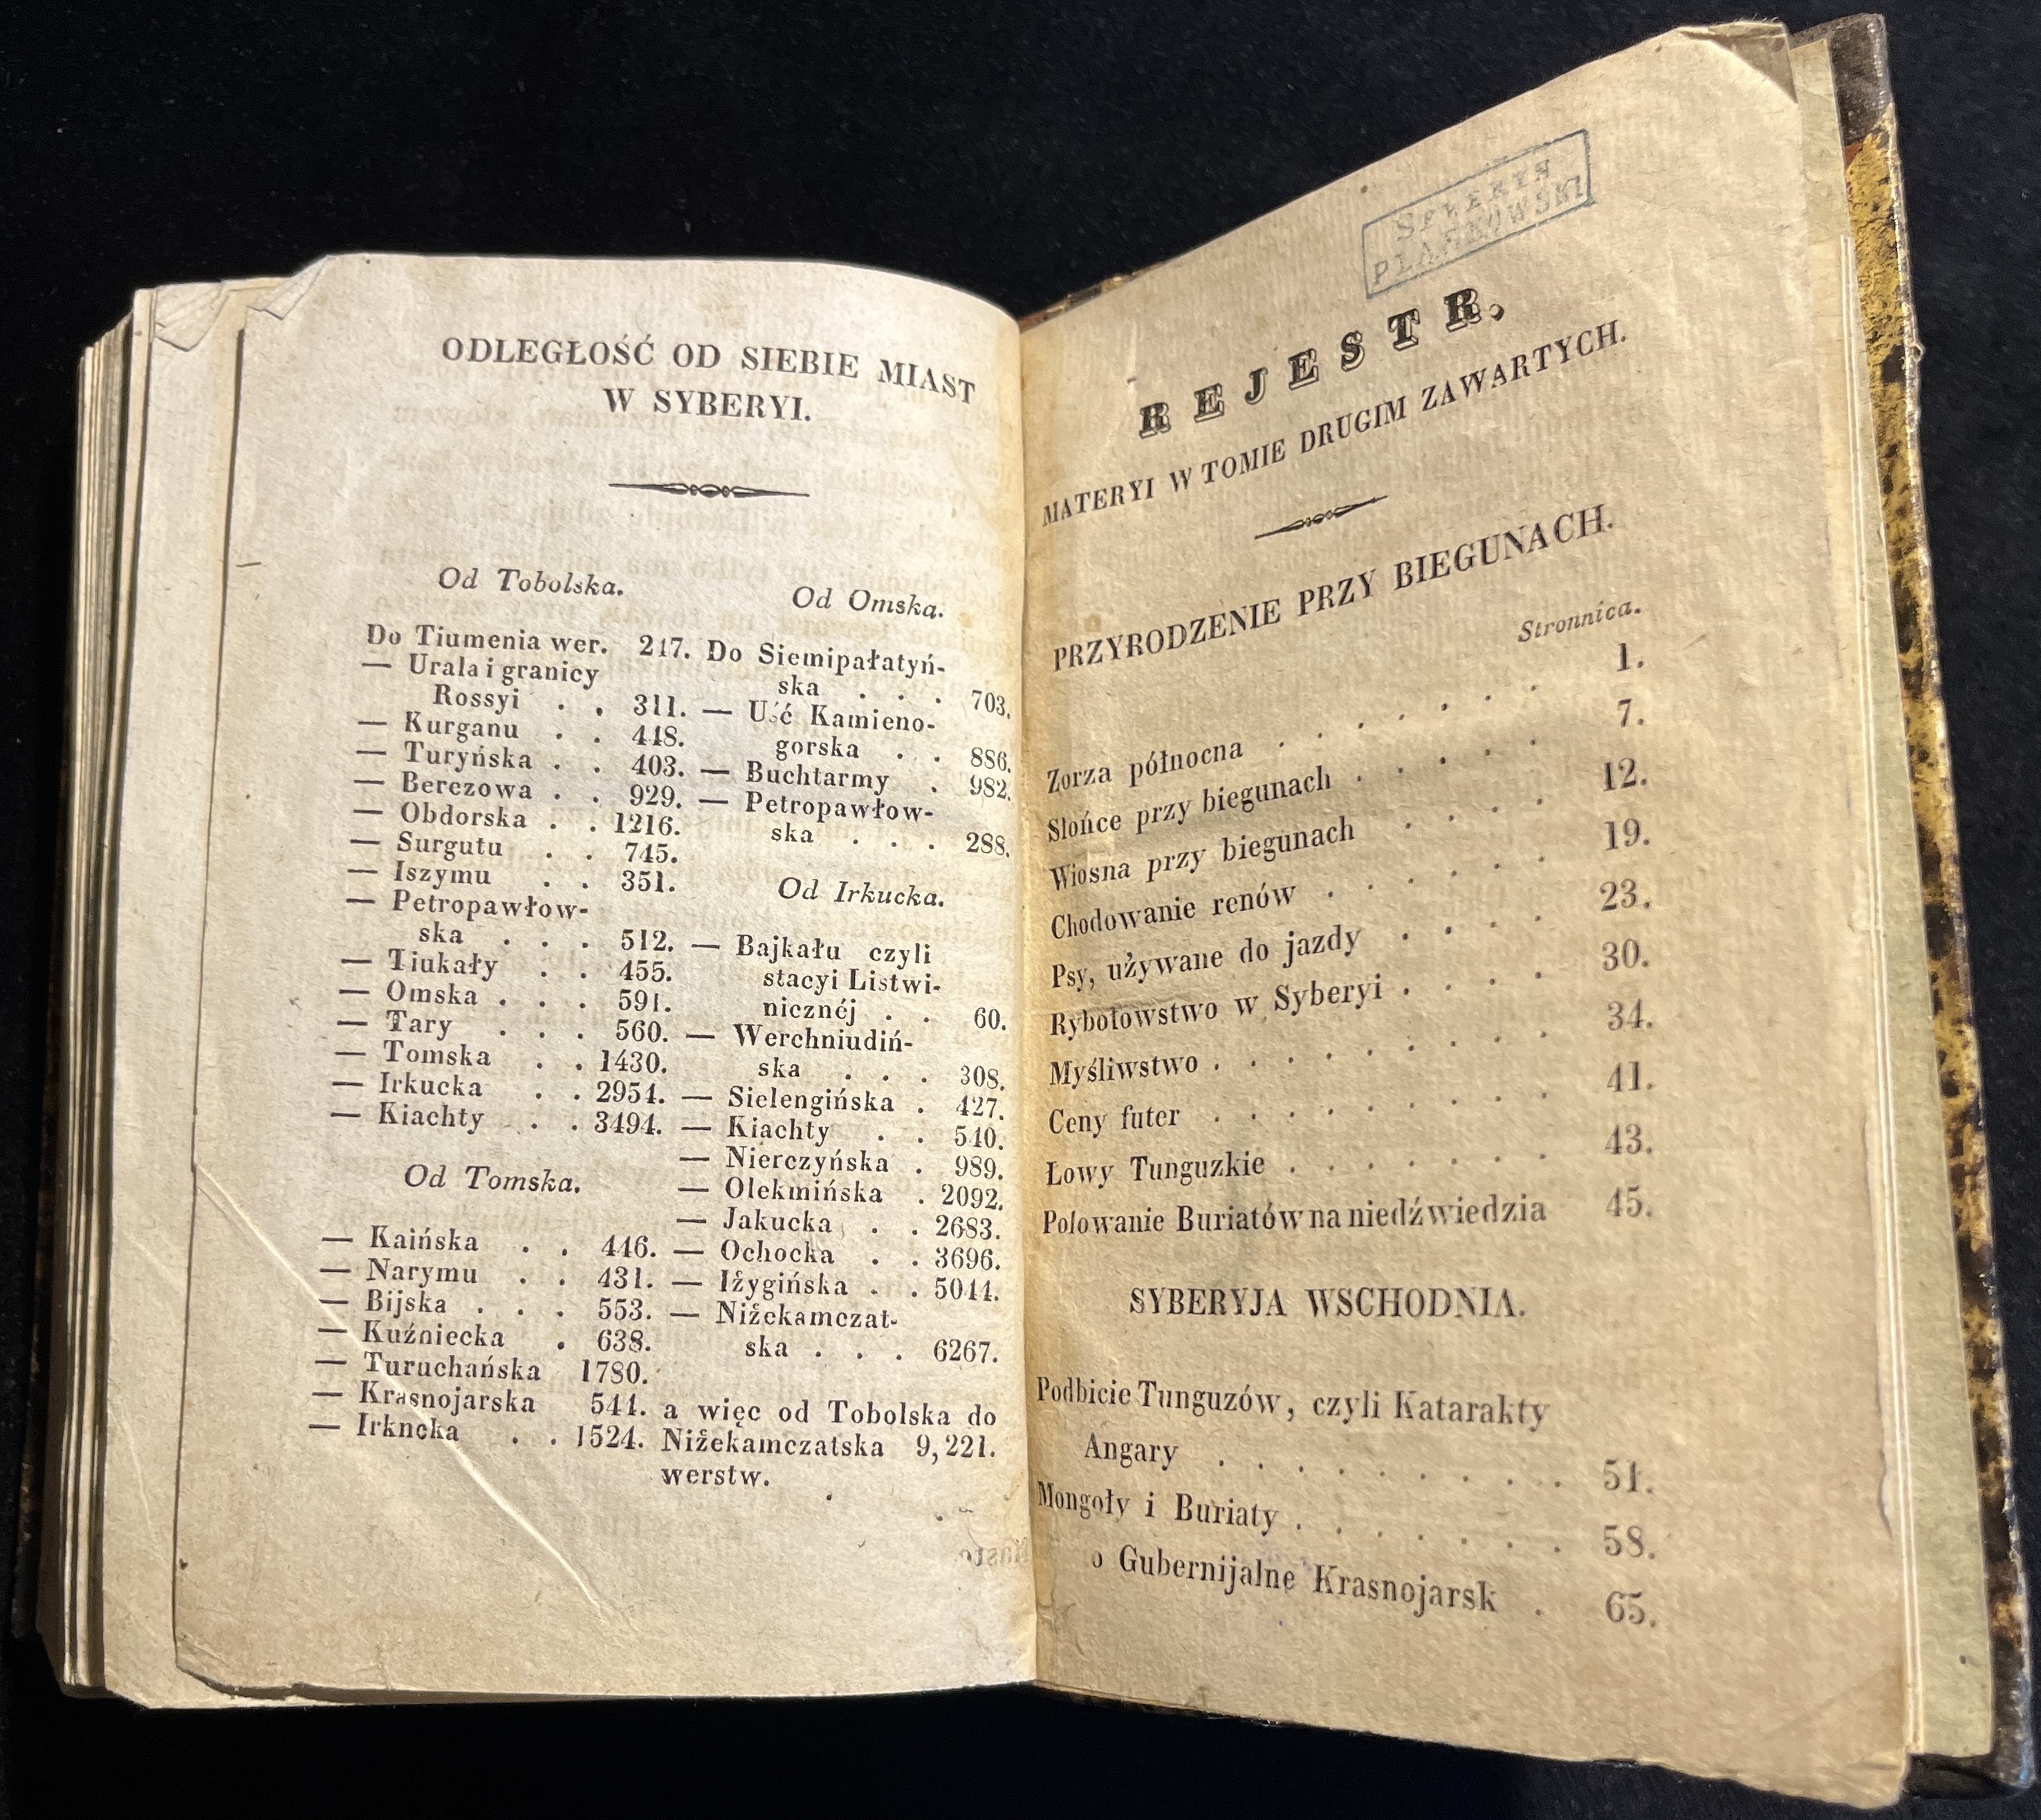 ODLEGŁOŚĆ OD SIEBIE MIAST
W SYBERYI.
Od Tobolska.
Do Tiumenia wer. 247.
— Urala i granicy
Rossyi . . 311.
— Kurganu . . 448.
— Turyńska . . 403.
— Berezowa . . 929.
— Obdorska . . 1216.
— Surgutu . . 745.
— Iszymu . . 351.
— Petropawłow-
ska . . . 512.
— Tiukały . . 455.
— Omska . . . 591.
— Tary . . . 560.
— Tomska . . 1430.
— Irkucka . . 2954.
— Kiachty . . 3494.
Od Tomska.
— Kaińska . . 446.
— Narymu . . 431.
— Bijska . . . 553.
— Kuźniecka . 638.
— Turuchańska 1780.
— Krasnojarska 544.
— Irkncka . . 1524.
Od Omska.
Do Siemipałatyń-
ska . . . 703.
— Uść Kamieno-
gorska . . 886.
— Buchtarmy . 982.
— Petropawłow-
ska . . . 288.
Od Irkucka.
— Bajkału czyli
stacyi Listwi-
nicznéj . . 60.
— Werchniudiń-
ska . . . 308.
— Sielengińska . 427.
— Kiachty . . 540.
— Nierczyńska . 989.
— Olekmińska . 2092.
— Jakucka . . 2683.
— Ochocka . . 3696.
— Iżygińska . . 5044.
— Niżekamczat-
ska . . . 6267.
a więc od Tobolska do
Niżekamczatska 9,221.
werstw.
REJESTR.
MATERYI W TOMIE DRUGIM ZAWARTYCH.
PRZYRODZENIE PRZY BIEGUNACH.
Stronnica.
Zorza północna . . . . . . 1.
Słońce przy biegunach . . . . 7.
Wiosna przy biegunach . . . . 12.
Chodowanie renów . . . . . 19.
Psy, używane do jazdy . . . . 23.
Rybołowstwo w Syberyi . . . . 30.
Myśliwstwo . . . . . . . . 34.
Ceny futer . . . . . . . . 41.
Łowy Tunguzkie . . . . . . . 43.
Polowanie Buriatów na niedźwiedzia 45.
SYBERYJA WSCHODNIA.
Podbicie Tunguzów, czyli Katarakty
Angary . . . . . . . . . 51.
Mongoły i Buriaty . . . . . . . 58.
o Gubernijalne Krasnojarsk . 65.